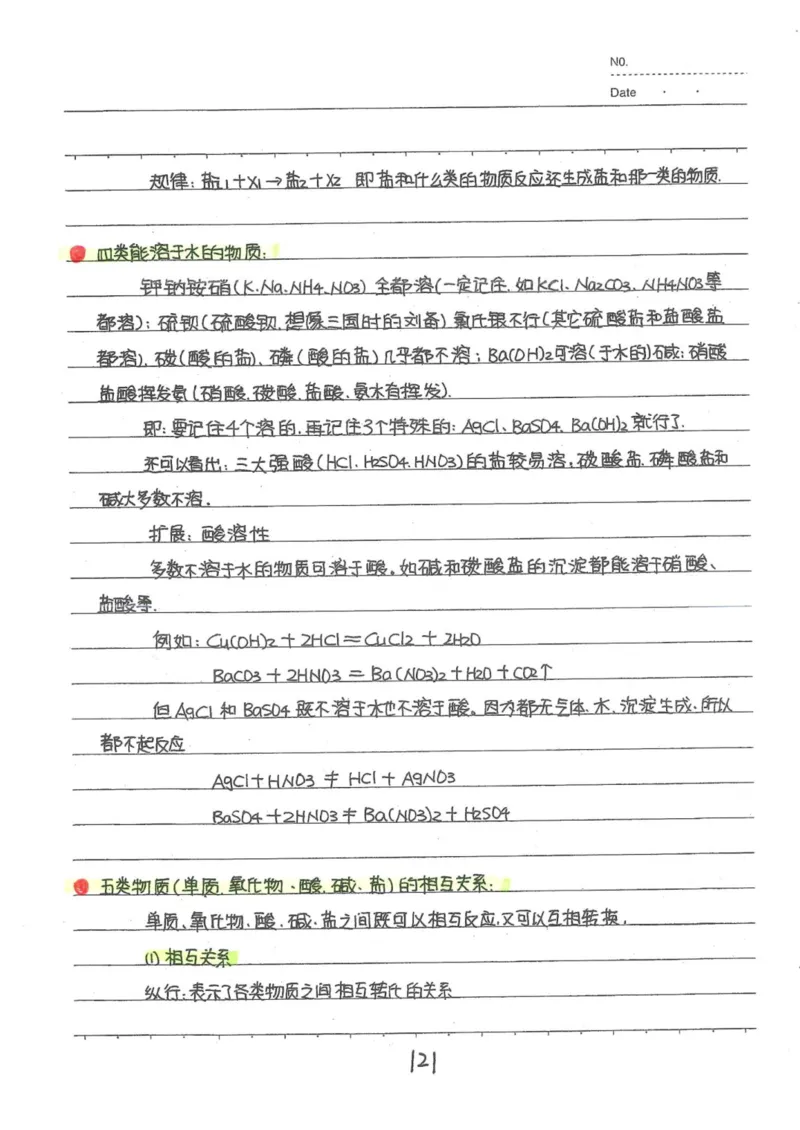 NO.
Date · ·
规律：盐1+X1→盐2+X2 即盐和什么类的物质反应还生成盐和那一类的物质.
四类能溶于水的物质：
钾钠铵硝(K.Na.NH4.NO3) 全都溶(一定记住.如KCl、Na2CO3、NH4NO3等
都溶)；硫钡(硫酸钡.想像三国时的刘备)氯化银不行(其它硫酸盐和盐酸盐
都溶)、碳(酸的盐)、磷(酸的盐)几乎都不溶；Ba(OH)2可溶(于水的)碱；硝酸
盐酸挥发氨(硝酸.碳酸.盐酸.氨水有挥发).
即：要记住4个溶的.再记住3个特殊的：AgCl、BaSO4、Ba(OH)2就行了.
还可以看出：三大强酸(HCl.H2SO4.HNO3)的盐较易溶,碳酸盐.磷酸盐和
碱大多数不溶.
扩展：酸溶性
多数不溶于水的物质可溶于酸。如碱和碳酸盐的沉淀都能溶于硝酸、
盐酸等.
例如：Cu(OH)2+2HCl=CuCl2+2H2O
BaCO3+2HNO3=Ba(NO3)2+H2O+CO2↑
但AgCl和BaSO4既不溶于水也不溶于酸。因为都无气体.水.沉淀生成、所以
都不起反应
AgCl+HNO3≠HCl+AgNO3
BaSO4+2HNO3≠Ba(NO3)2+H2SO4
五类物质(单质.氧化物、酸.碱、盐)的相互关系：
单质、氧化物、酸.碱.盐之间既可以相互反应,又可以互相转换.
(1)相互关系
纵行：表示了各类物质之间相互转化的关系
121